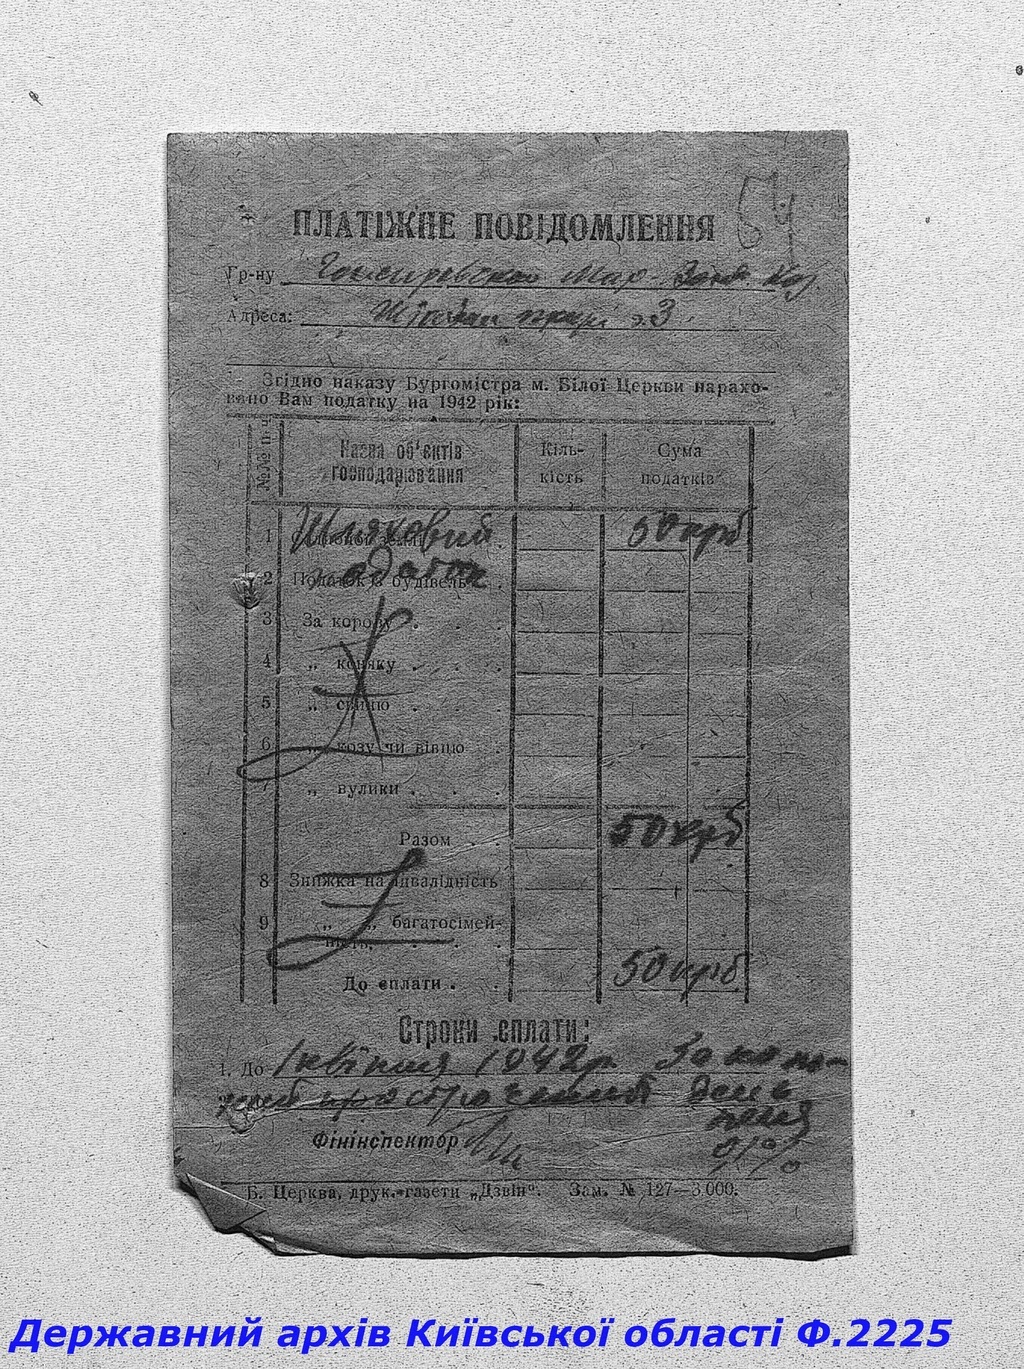 54
ПЛАТІЖНЕ ПОВІДОМЛЕННЯ
Гр-ну
Адреса: 3
Згідно наказу Бургомістра м. Білої Церкви нарахо-
вано Вам податку на 1942 рік:
№№ п-ч Назва об'єктів господарювання Кіль-кість Сума податків
1 Шляховий 50 крб
2 Податок з будівель податок
3 За корову
4 „ коняку
5 „ свиню
6 „ козу чи вівцю
7 „ вулики
Разом 50 крб
8 Знижка на інвалідність
9 „ „ багатосімей-
ність,
До сплати 50 крб
Строки сплати:
1. До 1 квітня 1942 р. За кож-
ний прострочений день
пеня
Фінінспектор
Б. Церква, друк. газети „Дзвін". Зам. № 127—3.000.
Державний архів Київської області Ф.2225